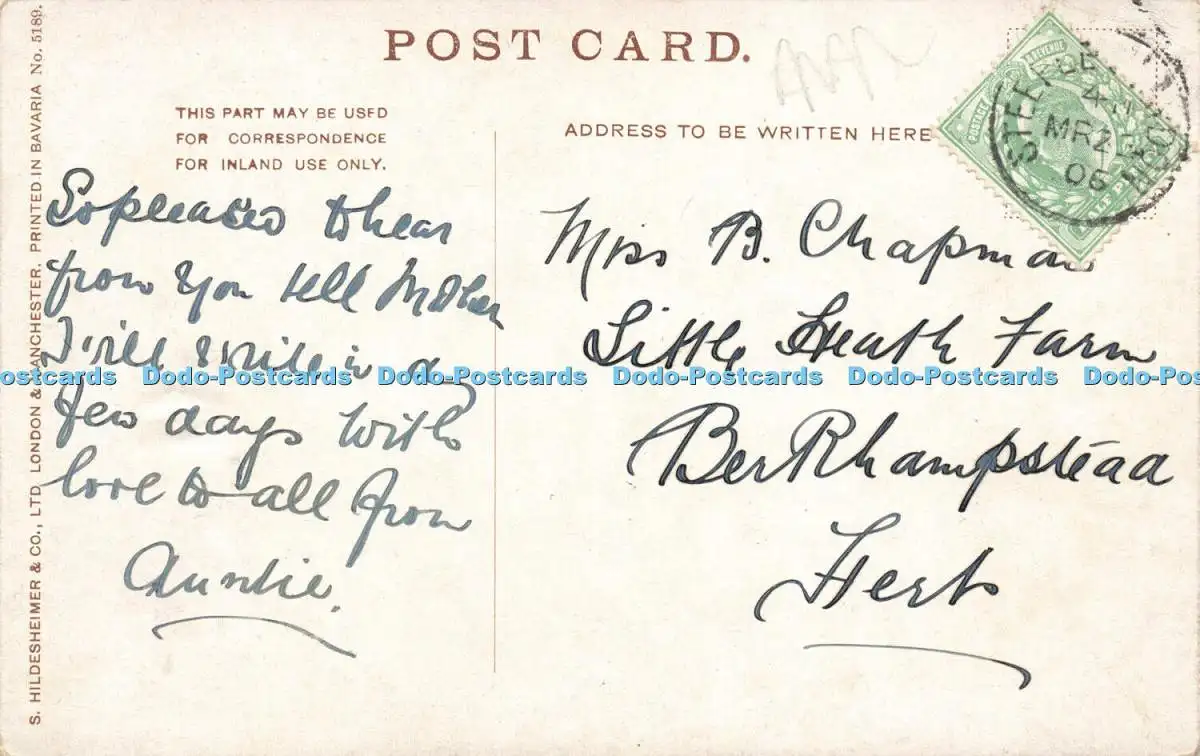 POST CARD.
THIS PART MAY BE USED
FOR CORRESPONDENCE
FOR INLAND USE ONLY.
ADDRESS TO BE WRITTEN HERE
S. HILDESHEIMER & CO., LTD. LONDON & MANCHESTER, PRINTED IN BAVARIA No. 5189.
So pleased to hear
from you tell Mother
I will write in a
few days with
love to all from
Auntie.
Miss B. Chapman
Little Heath Farm
Berkhampstead
Herts
POSTAGE REVENUE
MR 2
06
Dodo-Postcards Dodo-Postcards Dodo-Postcards Dodo-Postcards Dodo-Postcards Dodo-Pos